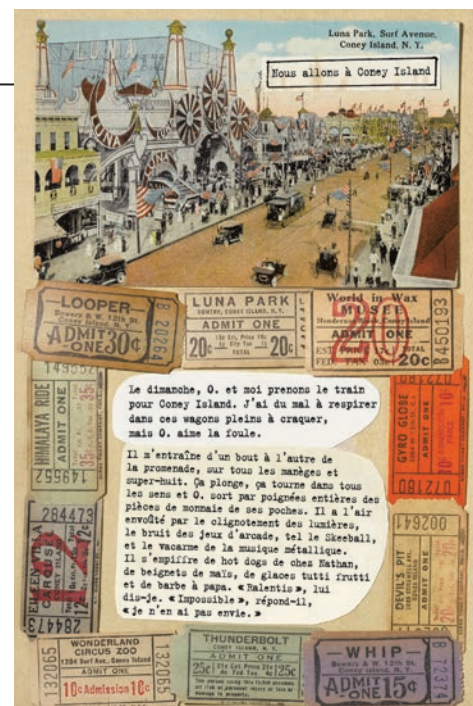 Luna Park, Surf Avenue,
Coney Island, N. Y.
Nous allons à Coney Island
LUNA
LUNA
LOOPER
Bowery & W. 12th St.
Coney Island, N. Y.
ADMIT
ONE 30¢
LUNA PARK
BOWERY, CONEY ISLAND, N. Y.
ADMIT ONE
20¢
TOTAL
20¢
World in Wax
MUSEE
ADMIT ONE
20¢
20
B 450193
HIMALAYA RIDE
ADMIT ONE
35¢
149552
GYRO GLOBE
ADMIT ONE
10¢
Le dimanche, O. et moi prenons le train
pour Coney Island. J'ai du mal à respirer
dans ces wagons pleins à craquer,
mais O. aime la foule.
Il m'entraîne d'un bout à l'autre de
la promenade, sur tous les manèges et
super-huit. Ça plonge, ça tourne dans tous
les sens et O. sort par poignées entières des
pièces de monnaie de ses poches. Il a l'air
envoûté par le clignotement des lumières,
le bruit des jeux d'arcade, tel le Skeeball,
et le vacarme de la musique métallique.
Il s'empiffre de hot dogs de chez Nathan,
de beignets de maïs, de glaces tutti frutti
et de barbe à papa. « Ralentis », lui
dis-je. « Impossible », répond-il,
« je n'en ai pas envie. »
284473
CAROUSEL
284473
DEVIL'S PIT
ADMIT ONE
20¢
WONDERLAND
CIRCUS ZOO
1204 Surf Ave., Coney Island
ADMIT ONE
10¢ Admission 10¢
132065
132065
THUNDERBOLT
CONEY ISLAND, N. Y.
ADMIT ONE
25¢
25¢
WHIP
Bowery & W. 12th St.
Coney Island, N. Y.
ADMIT
ONE 15¢
B 72374